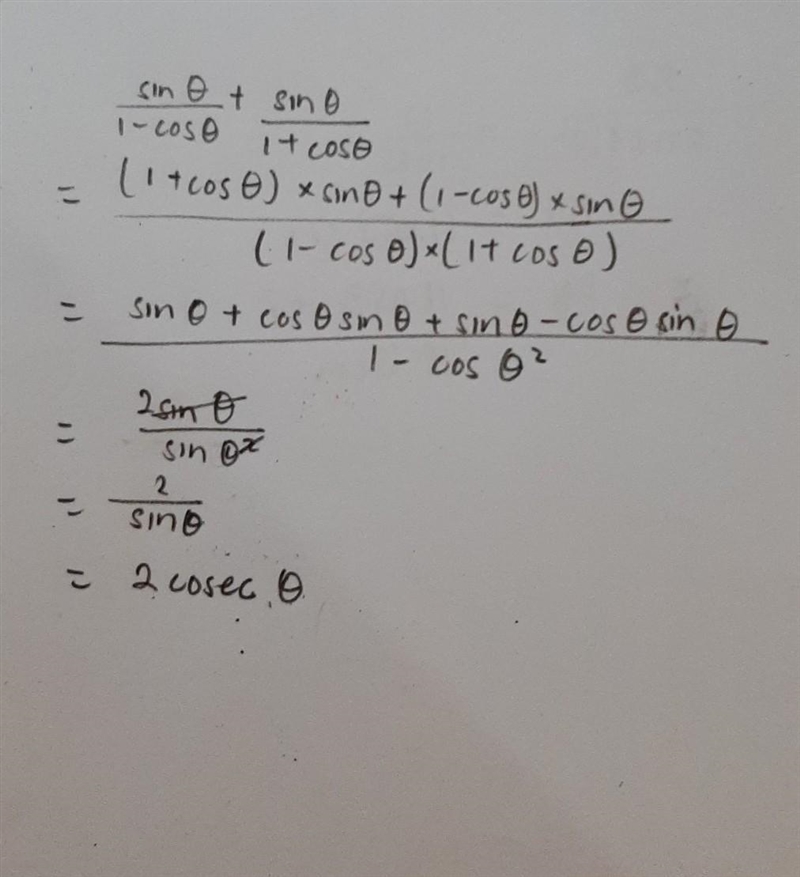 sin θ/1 - cos θ + sin θ/1 + cos θ
= (1 + cos θ) × sin θ + (1 - cos θ) × sin θ/(1 - cos θ) × (1 + cos θ)
= sin θ + cos θ sin θ + sin θ - cos θ sin θ/1 - cos θ²
= 2 sin θ/sin θ²
= 2/sin θ
= 2 cosec θ